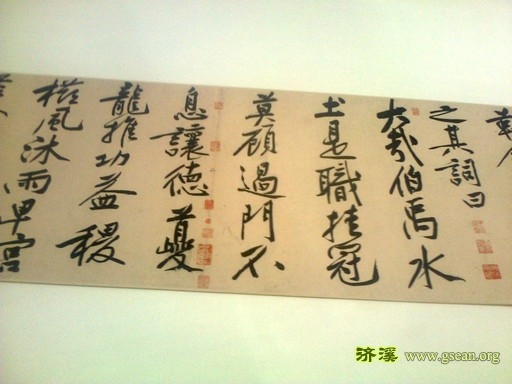 之其詞曰
大哉伯禹水
土是職挂冠
莫顧過門不
息讓德夔
龍推功益稷
櫛風沐雨卑宮
济溪 www.gsean.org